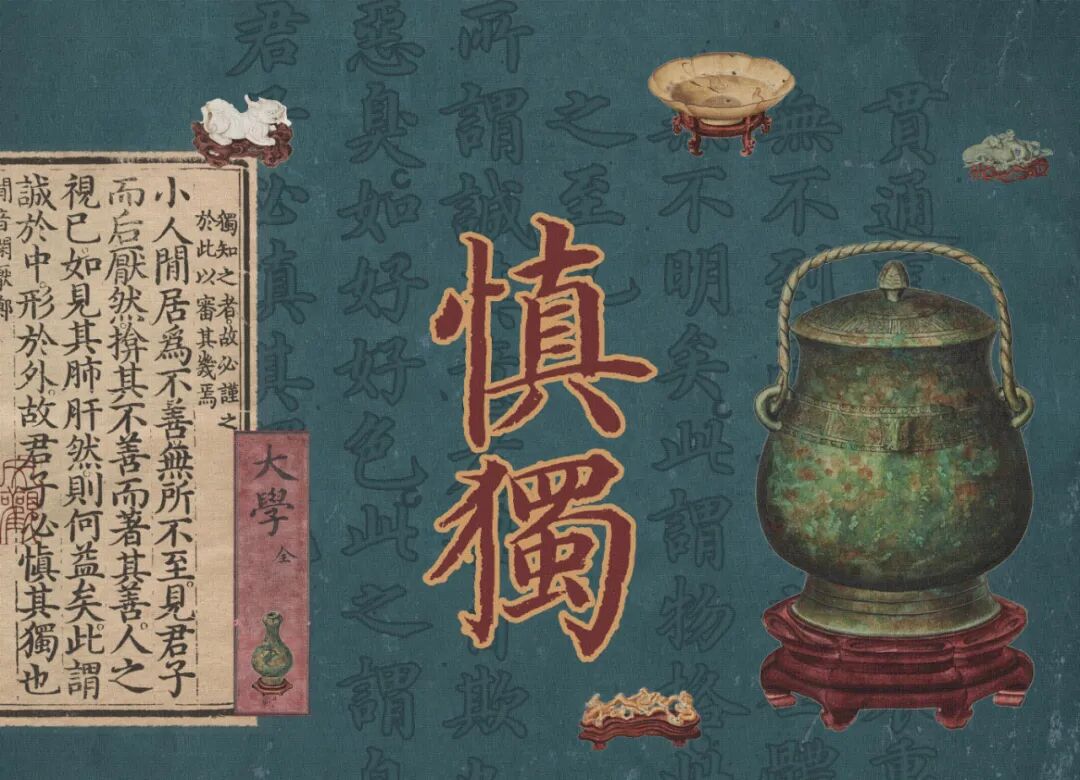 慎獨
貫通
無不到
無不明矣此謂物格此
之至也
所謂誠
欺
惡臭如好好色此之謂自
君子必慎其
獨知之者故必謹之
於此以審其幾焉
小人閒居爲不善無所不至。見君子
而后厭然揜其不善而著其善。人之
視己如見其肺肝然。則何益矣。此謂
誠於中。形於外。故君子必慎其獨也
閒音閑厭鄭
大學
全